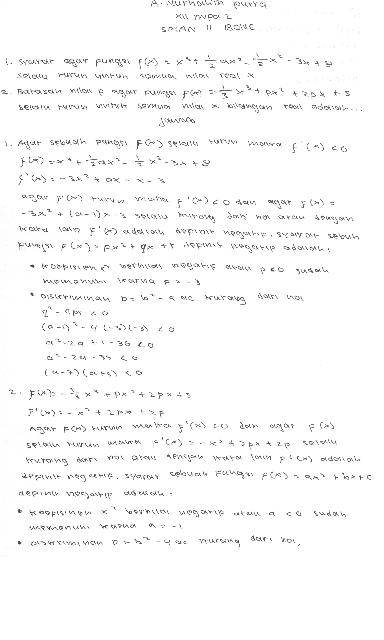 A. Nurhalim putra
XII MIPA 2
SMAN 11 BONE
1. Syarat agar fungsi f(x) = x³ + 1/2 ax² - 1/2 x² - 3x + 8
selalu turun untuk semua nilai real x
2. Batasan nilai p agar fungsi f(x) = -1/3 x³ + px² + 2px + 5
selalu turun untuk semua nilai x bilangan real adalah...
Jawab
1. Agar sebuah fungsi f(x) selalu turun maka f'(x) < 0
f(x) = x³ + 1/2 ax² - 1/2 x² - 3x + 8
f'(x) = -3x² + ax - x - 3
agar f(x) turun maka f'(x) < 0 dan agar f(x) =
-3x² + (a-1)x - 3 selalu kurang dari nol atau dengan
kata lain f'(x) adalah definit negatif, syarat sebuah
fungsi f(x) = px² + qx + r definit negatif adalah:
• koefisien x² bernilai negatif atau p < 0 sudah
memenuhi karna p = -3
• Diskriminan D = b² - 4ac kurang dari nol
q² - 4pr < 0
(a-1)² - 4(-3)(-3) < 0
a² - 2a + 1 - 36 < 0
a² - 2a - 35 < 0
(a-7)(a+5) < 0
2. f(x) = -1/3 x³ + px² + 2px + 5
f'(x) = -x² + 2px + 2p
Agar f(x) turun maka f'(x) < 0 dan agar f(x)
selalu turun maka f'(x) = -x² + 2px + 2p selalu
kurang dari nol atau dengan kata lain f'(x) adalah
definit negatif, syarat sebuah fungsi f(x) = ax² + bx + c
definit negatif adalah:
• koefisien x² bernilai negatif atau a < 0 sudah
memenuhi karna a = -1
• Diskriminan D = b² - 4ac kurang dari nol,